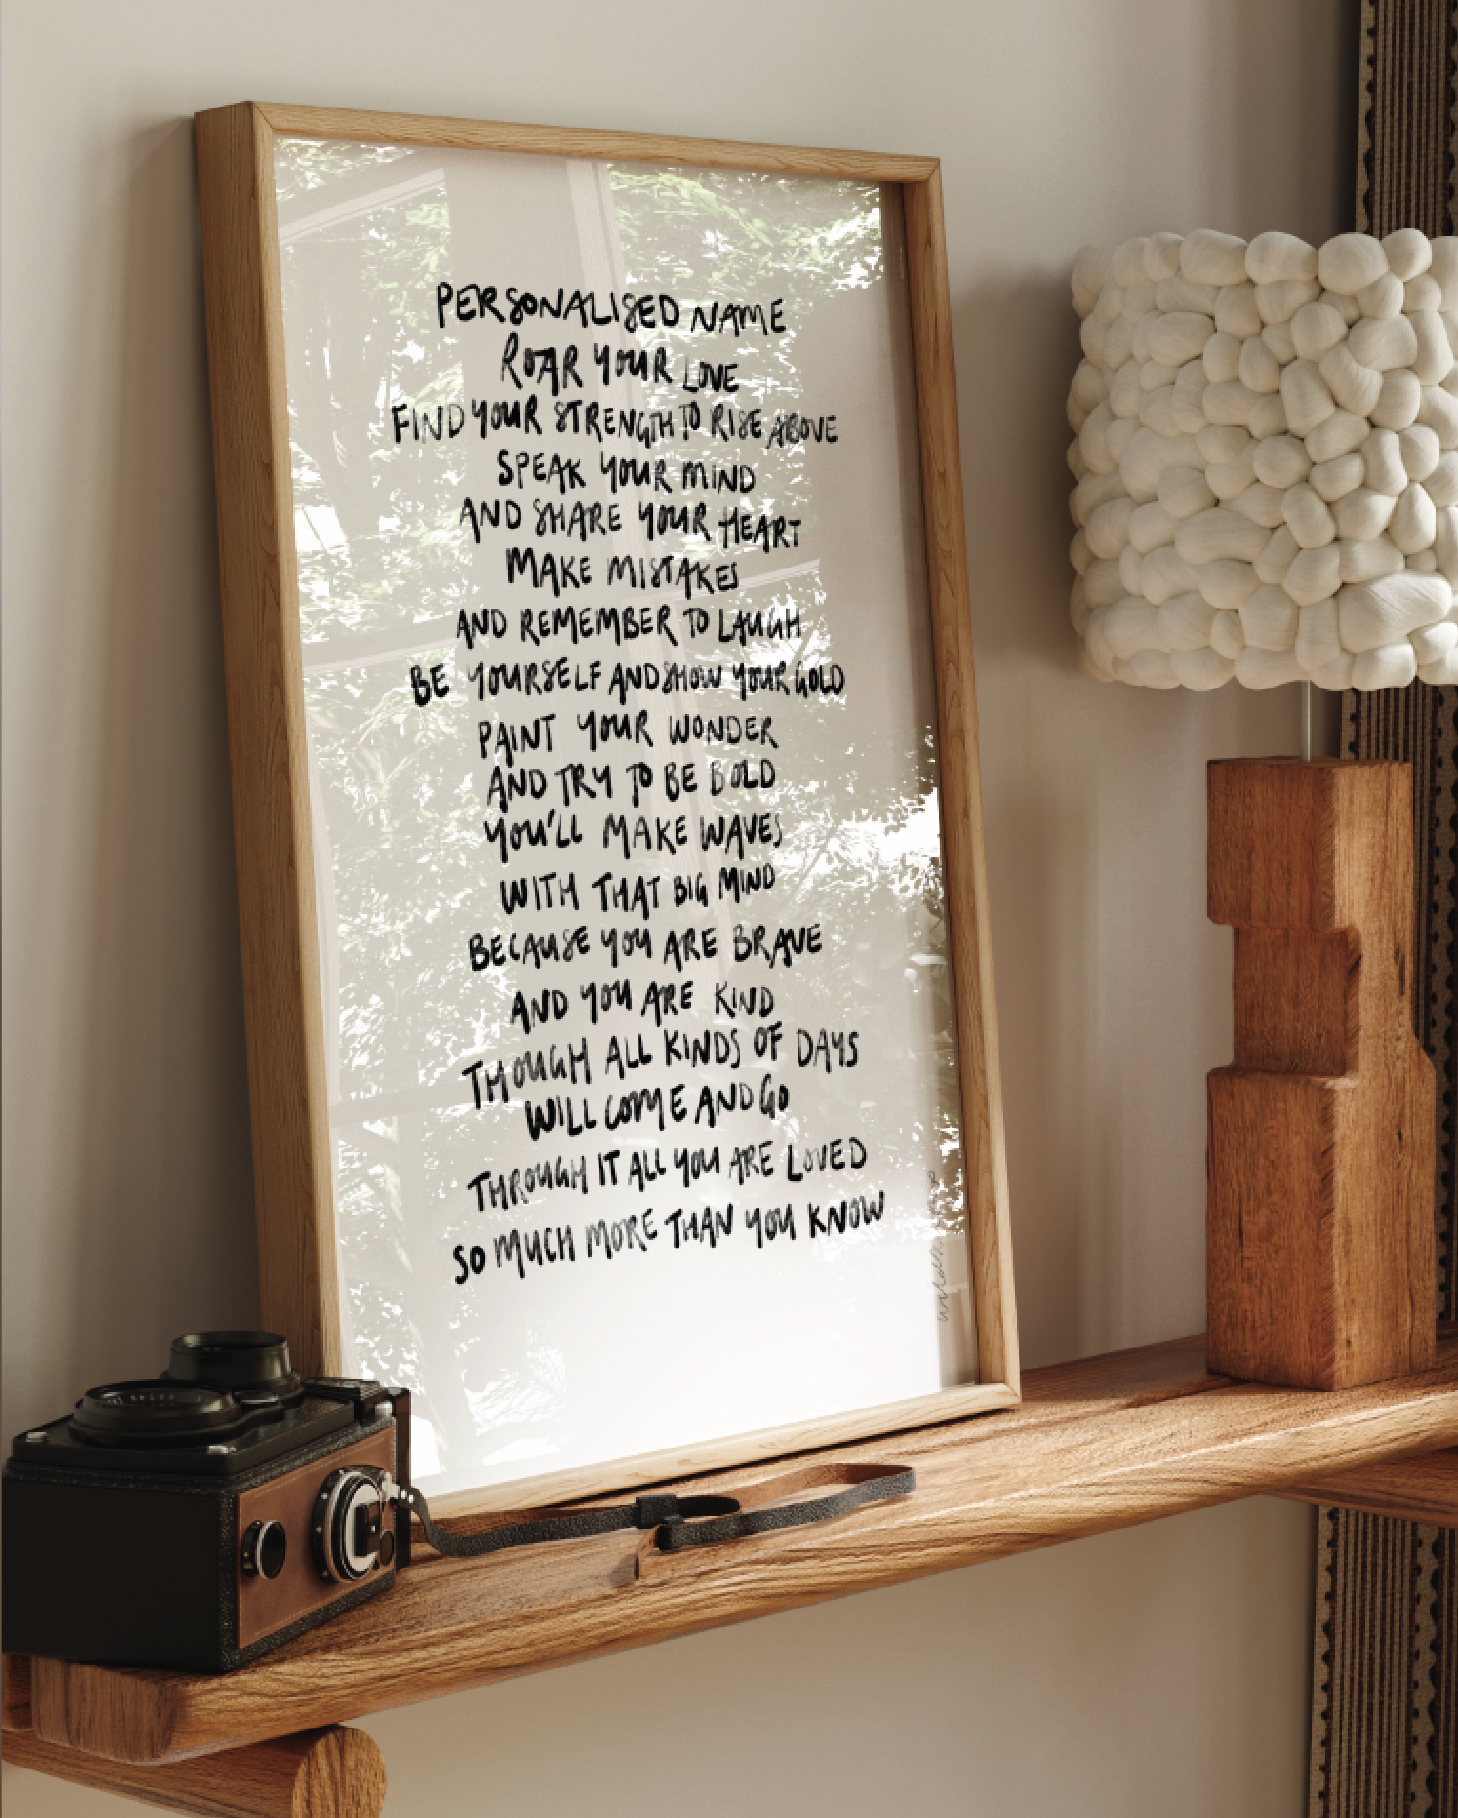 PERSONALISED NAME
ROAR YOUR LOVE
FIND YOUR STRENGTH TO RISE ABOVE
SPEAK YOUR MIND
AND SHARE YOUR HEART
MAKE MISTAKES
AND REMEMBER TO LAUGH
BE YOURSELF AND SHOW YOUR GOLD
PAINT YOUR WONDER
AND TRY TO BE BOLD
YOU'LL MAKE WAVES
WITH THAT BIG MIND
BECAUSE YOU ARE BRAVE
AND YOU ARE KIND
THOUGH ALL KINDS OF DAYS
WILL COME AND GO
THROUGH IT ALL YOU ARE LOVED
SO MUCH MORE THAN YOU KNOW